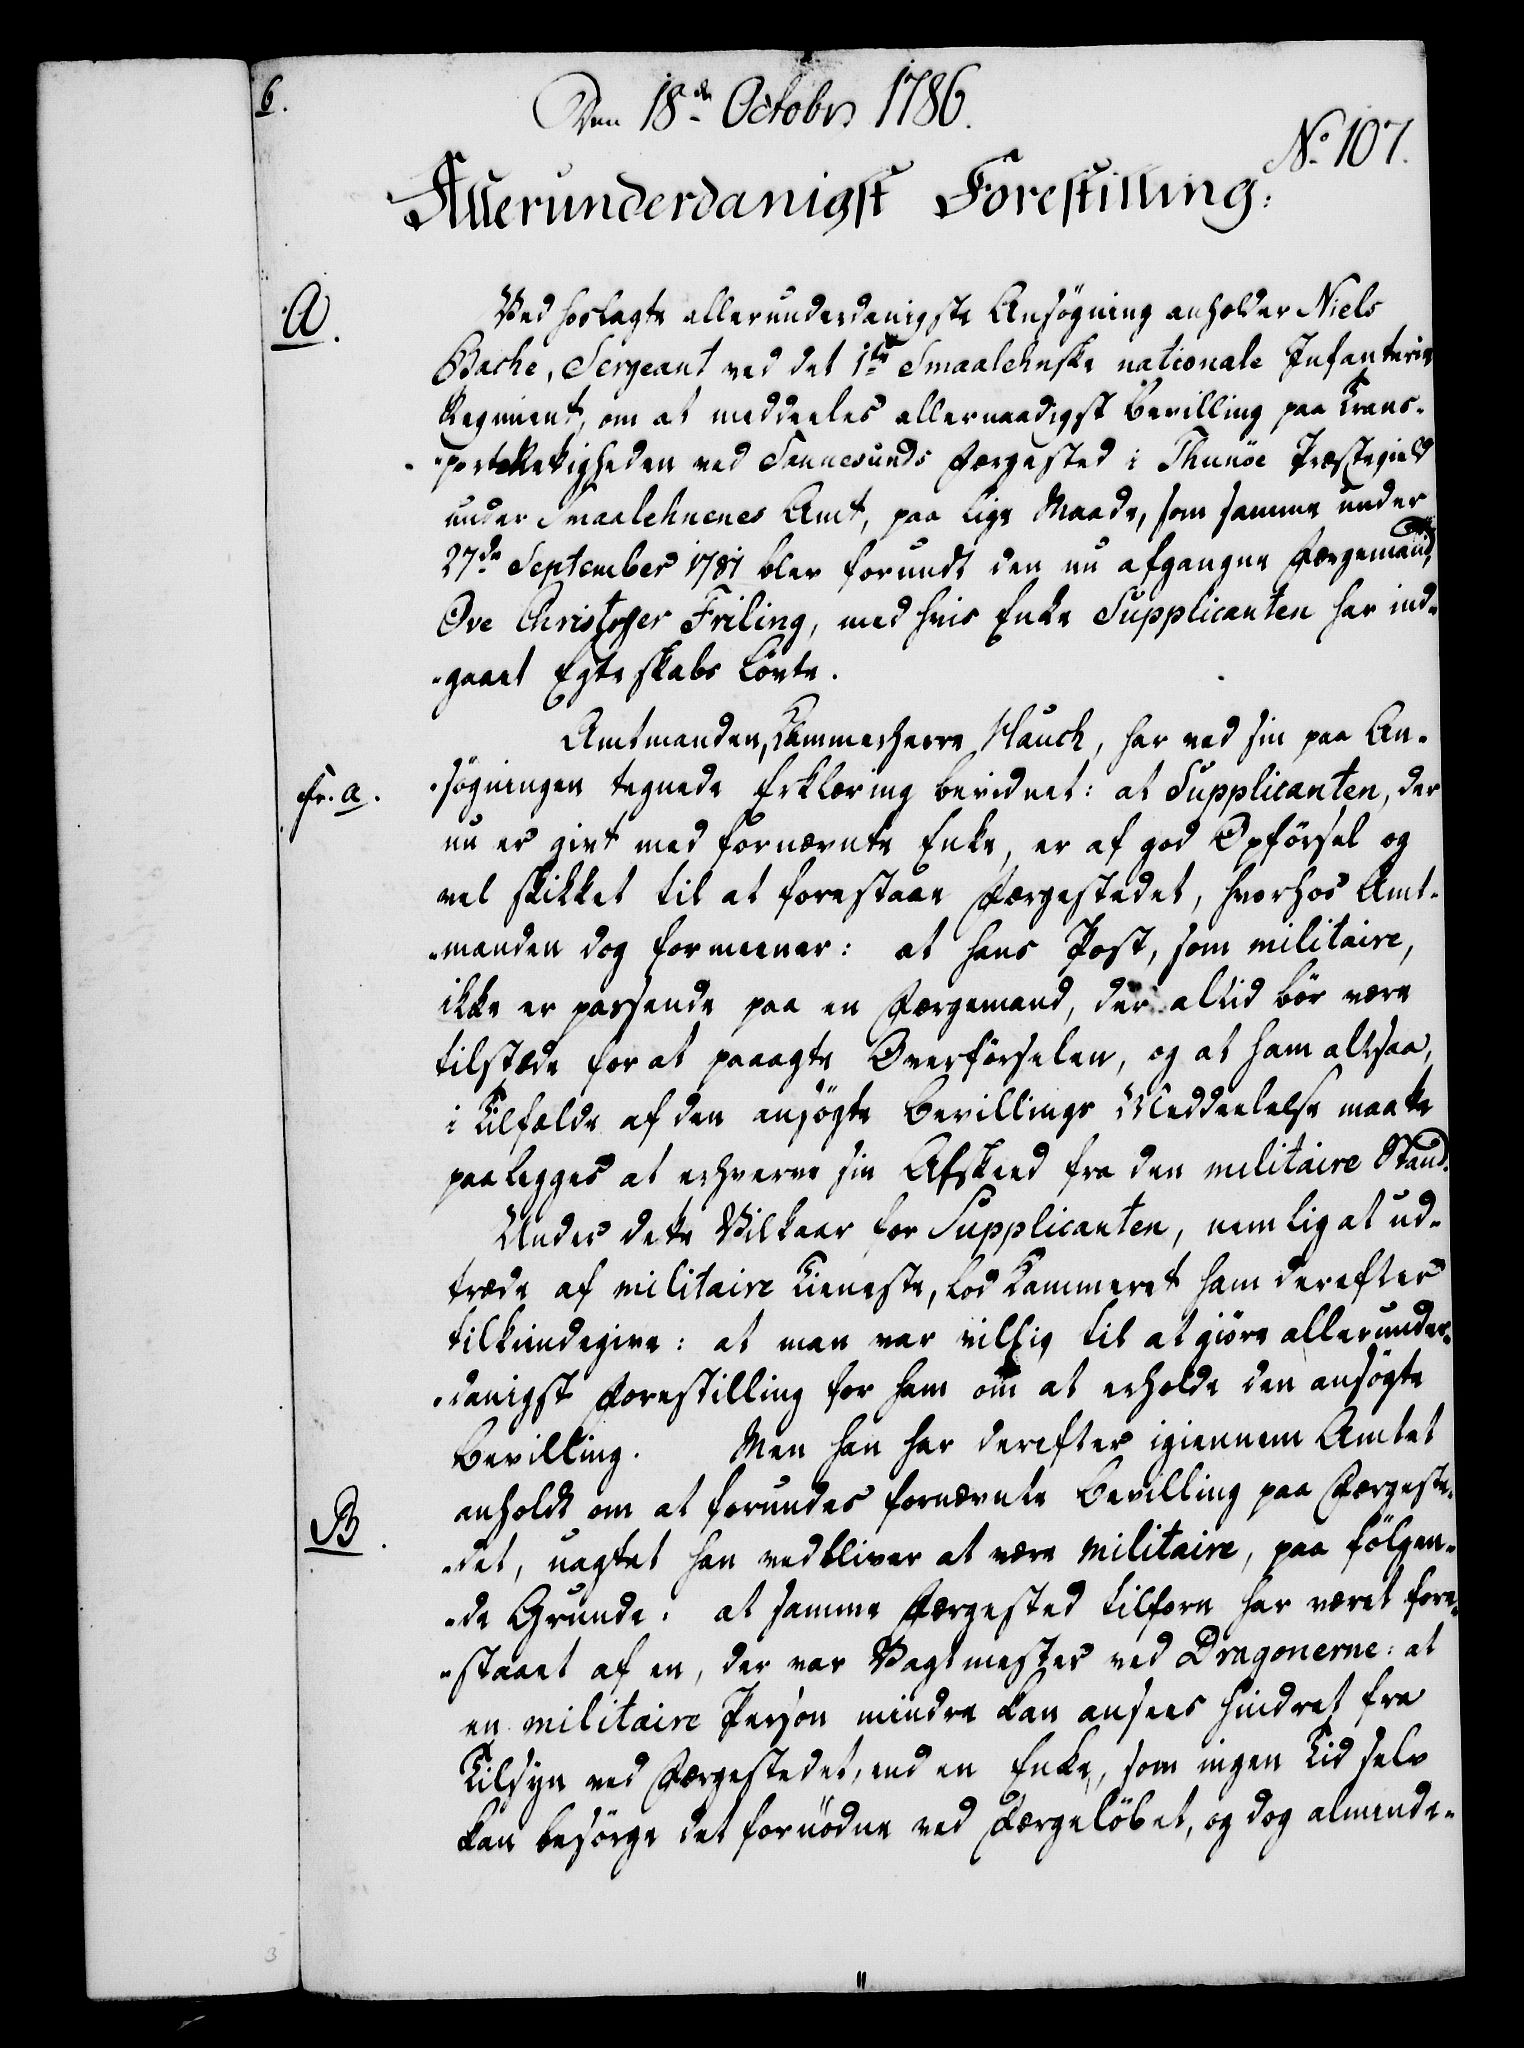 6.
Den 18de Octobr 1786.
No 107.
Allerunderdanigst Forestilling:
A.
Ved hoslagte allerunderdanigste Ansögning anholder Niels
Bache, Sergeant ved det 1ste Smaalehnske nationale Infanterie
Regiment, om at meddeeles allernaadigst Bevilling paa Trans-
-portRetigheden ved Sannesunds Færgested i Thunöe Præstegield
under Smaalehnenes Amt, paa lige Maade, som samme under
27de September 1781 blev forundt den nu afgangne Færgemand,
Ove Christofer Friling, med hvis Enke Supplicanten har ind-
-gaaet Egteskabs Lövte.
Amtmanden, Kammerherre Hauch, har ved sin paa An-
Fr. a.
-sögningen tegnede Erklæring bevidnet: at Supplicanten, der
nu er givt med fornævnte Enke, er af god Opförsel og
vel skikket til at forestaae Færgestedet, hvorhos Amt-
-manden dog formeener: at hans Post, som militaire,
ikke er passende paa en Færgemand, der altid bör være
tilstæde for at paaagte Overförselen, og at ham altsaa,
i Tilfælde af den ansögte Bevillings Meddeelelse maatte
paalegges at erhverve sin Afskeed fra den militaire Stand.
Under dette Vilkaar for Supplicanten, nemlig at ud-
træde af militaire Tieneste, lod Kammeret ham derefter
tilkiendegive: at man var villig til at giöre allerunder-
-danigst Forestilling for ham om at erholde den ansögte
Bevilling. Men han har derefter igiennem Amtet
B.
anholdt om at forundes fornævnte Bevilling paa Færgeste-
-det, uagtet han vedbliver at være militaire, paa fölgen-
-de Grunde: at samme Færgested tilforn har været fore-
-staaet af en, der var Vagtmester ved Dragonerne: at
en militaire Person mindre kan ansees hindret fra
Tilsyn ved Færgestedet, end en Enke, som ingen Tid selv
kan besörge det fornödne ved Færgelöbet, og dog alminde-
3